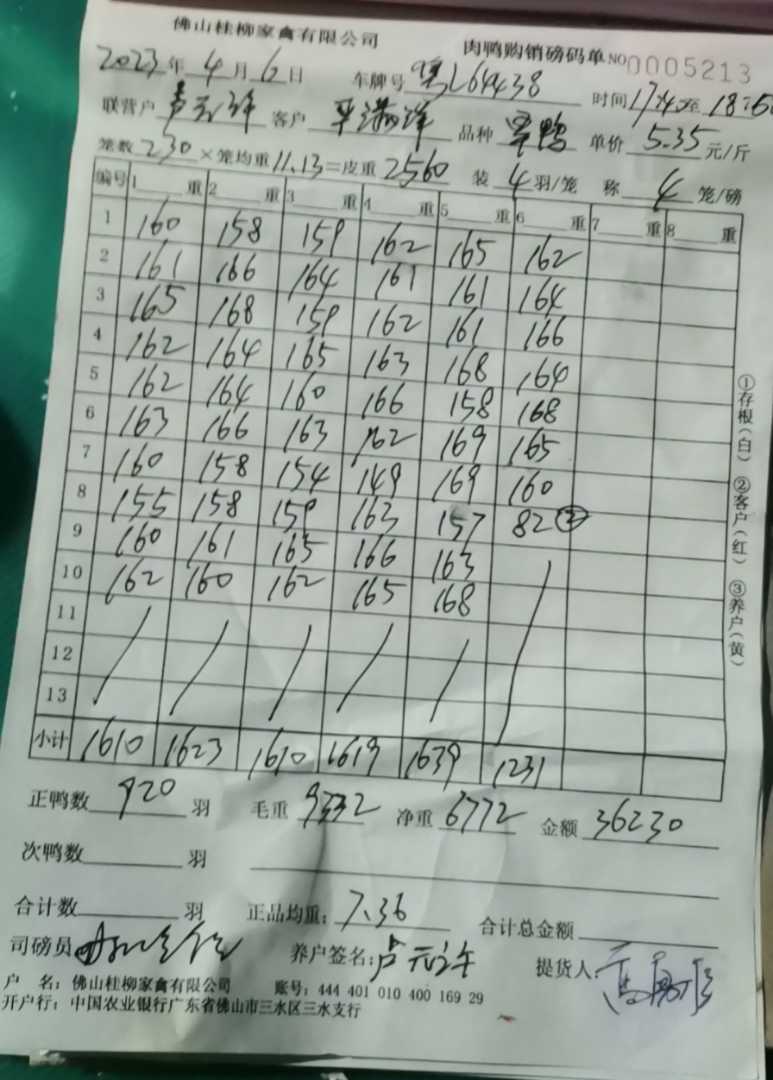 佛山桂柳家禽有限公司 肉鸭购销磅码单 NO 0005213
2023年 4月 6日 车牌号 粤L64438 时间 17:40至 18:50
联营户 卢元许 客户 品种 单价 5.35 元/斤
笼数 230 ×笼均重 11.13 =皮重 2560 装 4 羽/笼 称 4 笼/磅
编号 1 重 2 重 3 重 4 重 5 重 6 重 7 重 8 重
1 160 158 159 162 165 162
2 161 166 164 161 161 164
3 165 168 159 162 161 166
4 162 164 165 163 168 164
5 162 164 160 166 158 168
6 163 166 163 162 169 165
7 160 158 154 149 169 160
8 155 158 159 163 157 82 ②
9 160 161 165 166 163
10 162 160 162 165 168
11
12
13
小计 1610 1623 1610 1619 1639 1231
正鸭数 920 羽 毛重 9332 净重 6772 金额 36230
次鸭数 羽
合计数 羽 正品均重: 7.36 合计总金额
司磅员 养户签名: 卢元许 提货人:
户 名: 佛山桂柳家禽有限公司 账号: 444 401 010 400 169 29
开户行: 中国农业银行广东省佛山市三水区三水支行
①存根(白) ②客户(红) ③养户(黄)